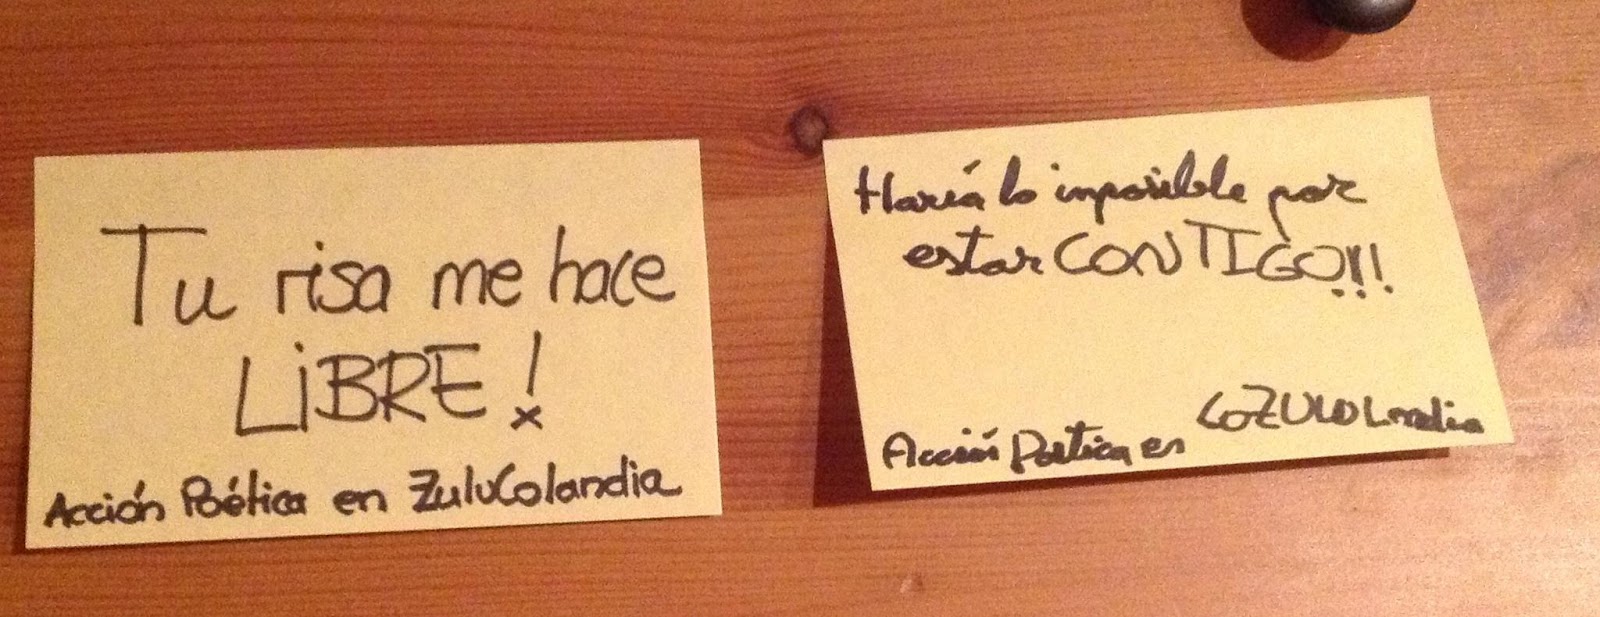 Tu risa me hace
LiBRE!
Acción Poética en ZuluColandia
Haría lo imposible por
estar CONTIGO!!!
Acción Poética en COZULOLandia